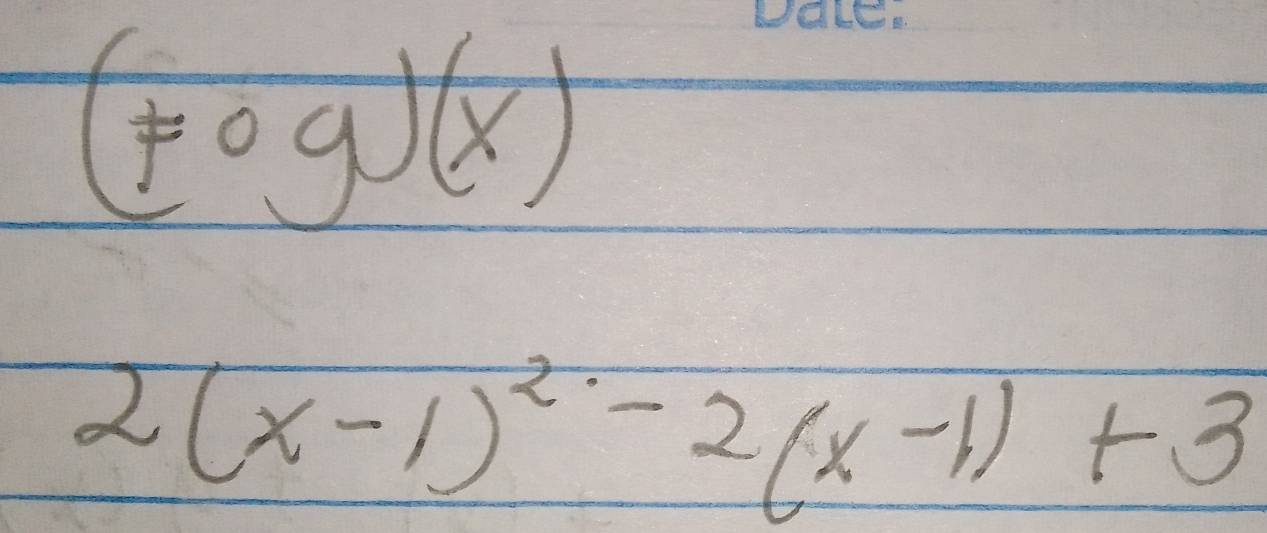 Date:
(f o g)(x)
2(x-1)² - 2(x-1) + 3